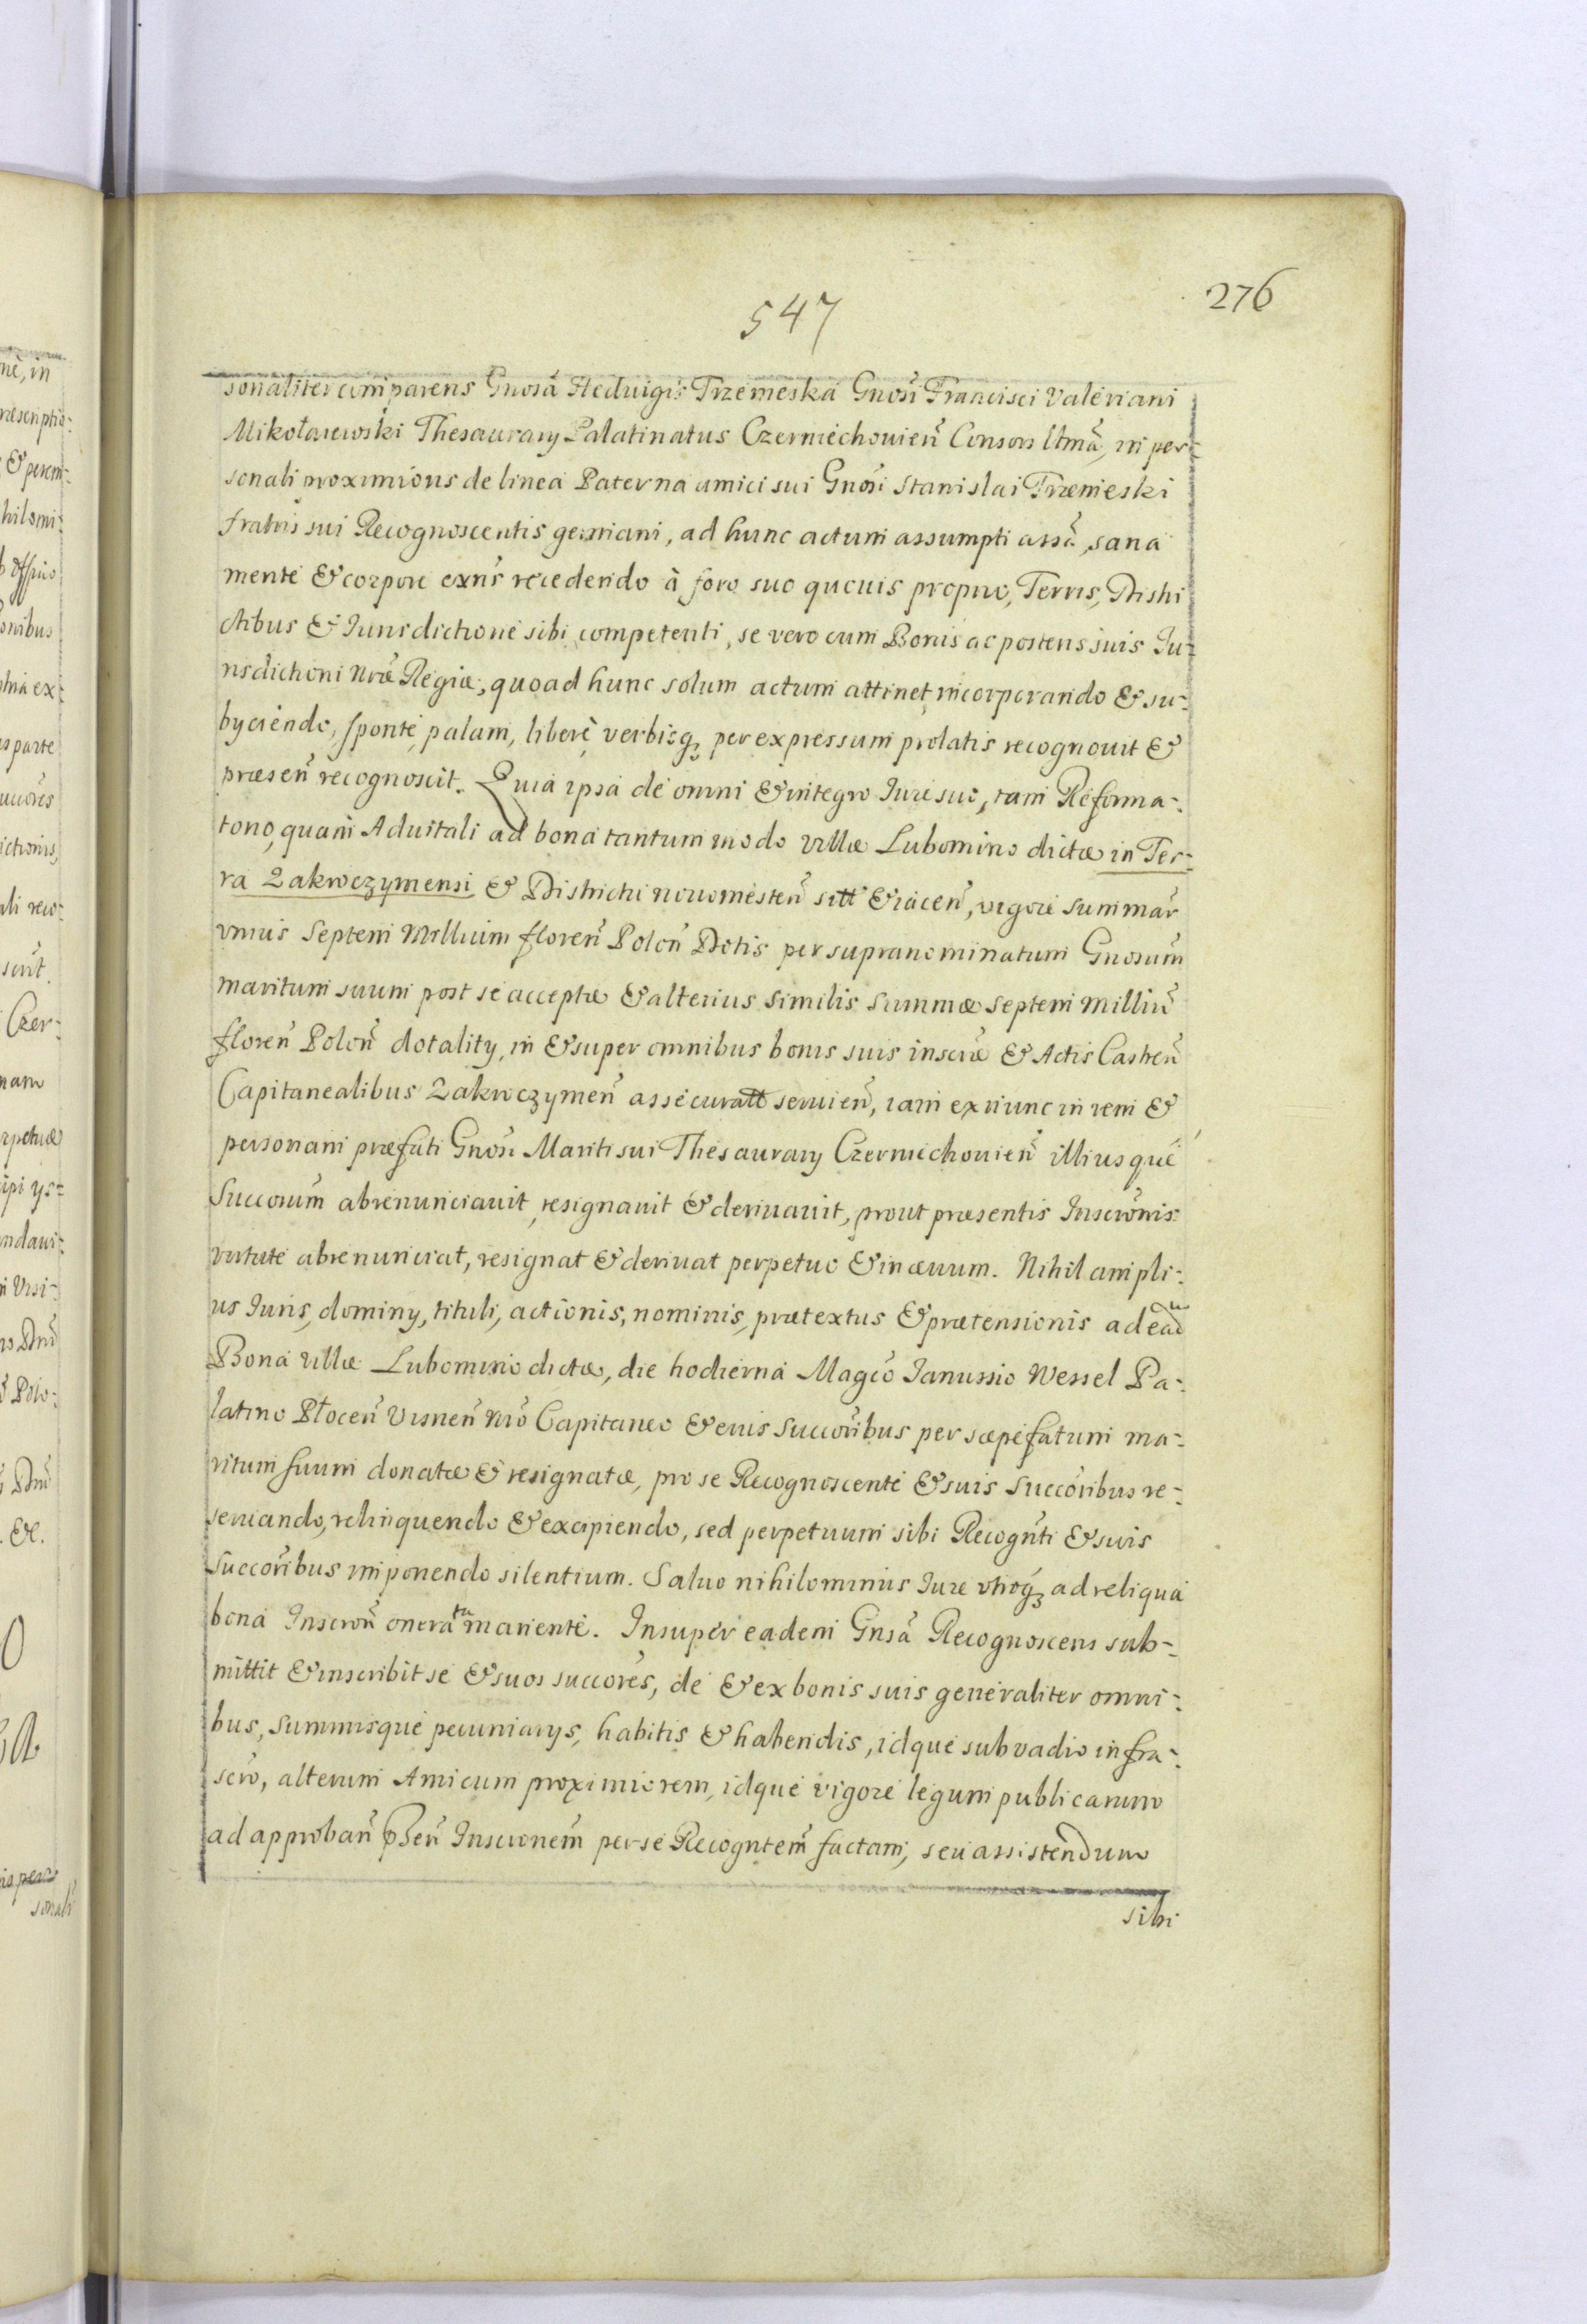 547
276
sonaliter comparens Gnosã Heduigis Trzemeska Gnosi Francisci Valeriani
Mikołaiewski Thesaurary Palatinatus Czerniechouień Consors ltmã, in per-
sonali proximioris de linea Paterna amici sui Gnosi Stanislai Trzemeski
fratris sui Recognoscentis germani, ad hunc actum assumpti assã, sana
mente & corpore exñs recedendo à foro suo quouis proprio, Terris, Distri
ctibus & Iurisdictione sibi competenti, se vero cum Bonis ac posteris suis Iu-
risdictioni Nrae Regiae, quoad hunc solum actum attinet incorporando & su-
byciendo, sponte, palam, liberè verbisq3 per expressum prolatis recognouit &
praeseñ recognoscit. Quia ipsa de omni & integro Iure suo, tam Reforma-
torio, quam Aduitali ad bona tantummodo villae Lubomino dictae in Ter-
ra Zakroczymensi & Districtu nouomesteñ sitt & iaceñ, vigore summar
vnius Septem Millium floreñ Poloñ Dotis per supranominatum Gnosum̃
maritum suum post se acceptae & alterius similis summae septem milliũ
floreñ Poloñ dotality, in & super omnibus bonis suis inscrae & Actis Castreñ
Capitanealibus Zakroczymeñ assecuratt seruień, iam ex nunc in rem &
personam praefati Gnosi Mariti sui Thesaurary Czerniechouień illiusque
Succorum̃ abrenunciauit, resignauit & deriuauit, prout praesentis Inscrõnis
virtute abrenunciat, resignat & deriuat perpetuo & in aeuum. Nihil ampli-
us Iuris, dominy, tituli, actionis, nominis, praetextus & praetensionis ad ead
Bona villae Lubomino dictae, die hodierna Magco Ianussio Wessel Pa-
latino Płoceñ Visneñ Nro Capitaneo & eius Succoribus per saepefatum ma-
ritum suum donatae & resignatae, pro se Recognoscente & suis Succoribus re-
seruando, relinquendo & excipiendo, sed perpetuum sibi Recogñti & suis
Succoribus imponendo silentium. Saluo nihilominus Iure vtroq3 ad reliqua
bona Inscroñ onerata manente. Insuper eadem Gnsã Recognoscens sub-
mittit & inscribit se & suos succores, de & ex bonis suis generaliter omni-
bus, summisque pecuniarys, habitis & habendis, idque sub vadio infra-
scro, alterum Amicum proximiorem, idque vigore legum publicarum
ad approbañ pseñ Inscrionem̃ per se Recogntem̃ factam, seu assistendum
sibi